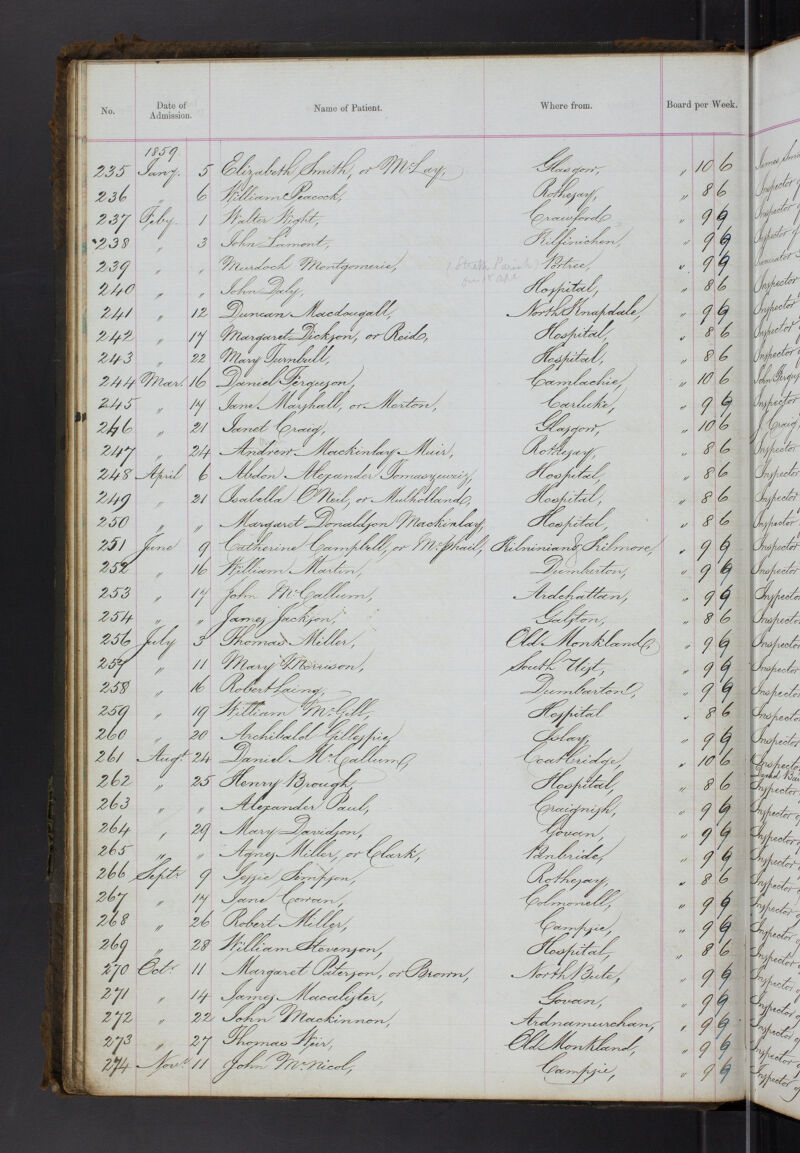 No. Date of Admission. Name of Patient. Where from. Board per Week.
1859
235 Jany. 5 Elizabeth Smith, or McLay, Glasgow, " 10 6
236 " 6 William Peacock, Rothesay, " 8 6
237 Feby. 1 Walter Wight, Crawford, " 9 9
238 " 3 John Lamont, Kilfinichen, " 9 9
239 " " Murdoch Montgomerie, Portree, " 9 9
240 " " John Daly, Hospital, " 8 6
241 " 12 Duncan Macdougall, North Knapdale, " 9 9
242 " 17 Margaret Dickson, or Reid, Hospital, " 8 6
243 " 22 Mary Turnbull, Hospital, " 8 6
244 Mar. 16 Daniel Ferguson, Camlachie, " 10 6
245 " 17 Jane Marshall, or Morton, Carluke, " 9 9
246 " 21 Janet Craig, Glasgow, " 10 6
247 " 24 Andrew Mackinlay Muir, Rothesay, " 8 6
248 April 6 Abdon Alexander Hospital, " 8 6
249 " 21 Isabella O'Neil, or Mulholland, Hospital, " 8 6
250 " " Margaret Donaldson Mackinlay, Hospital, " 8 6
251 June 9 Catherine Campbell, or McPhail, Kilninian & Kilmore, " 9 9
252 " 16 William Martin, Dumbarton, " 9 9
253 " 17 John McCallum, Ardchattan, " 9 9
254 " " James Jackson, Galston, " 8 6
256 July 3 Thomas Miller, Old Monkland, " 9 9
257 " 11 Mary Morrison, South Uist, " 9 9
258 " 16 Robert Laing, Dumbarton, " 9 9
259 " 19 William McGill, Hospital " 8 6
260 " 20 Archibald Gillespie, Islay, " 9 9
261 Augt. 24 Daniel McCallum, Coatbridge, " 10 6
262 " 25 Henry Brough, Hospital, " 8 6
263 " " Alexander Paul, Craignish, " 9 9
264 " 29 Mary Davidson, Govan, " 9 9
265 " " Agnes Miller, or Clark, Panbride, " 9 9
266 Septr. 9 Jessie Simpson, Rothesay, " 8 6
267 " 17 Jane Cowan, Colmonell, " 9 9
268 " 26 Robert Miller, Campsie, " 9 9
269 " 28 William Stevenson, Hospital, " 8 6
270 Octr. 11 Margaret Paterson, or Brown, North Bute, " 9 9
271 " 14 James Macalister, Govan, " 9 9
272 " 22 John Mackinnon, Ardnamurchan, " 9 9
273 " 27 Thomas Weir, Old Monkland, " 9 9
274 Novr. 11 John McNicol, Campsie, " 9 9